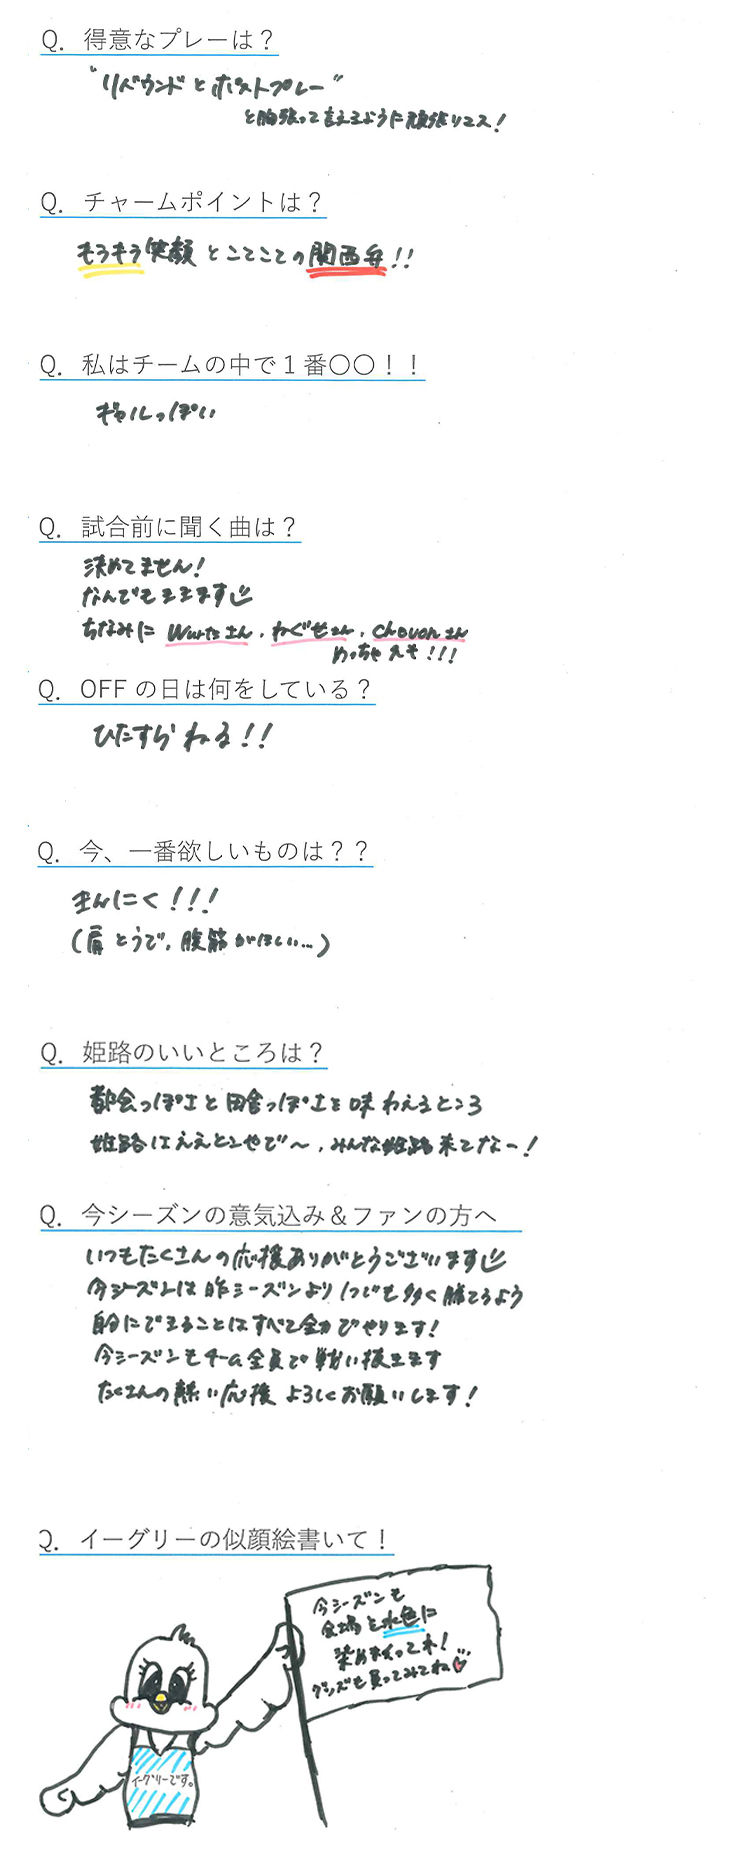 Q. 得意なプレーは？
"リバウンドとポストプレー"
と胸張って言えるように頑張りマス！
Q. チャームポイントは？
もうもう笑顔とこてこての関西弁!!
Q. 私はチームの中で1番〇〇！！
ギャルっぽい
Q. 試合前に聞く曲は？
決めてません！
なんでもききます
ちなみに Wurtsさん、ねぐせさん、Chevonさん
めっちゃええ!!!
Q. OFFの日は何をしている？
ひたすらねる!!
Q. 今、一番欲しいものは？？
きんにく!!!
(肩とうで、腹筋がほしい…)
Q. 姫路のいいところは？
都会っぽさと田舎っぽさを味わえるところ
姫路はええとこやで〜、みんな姫路来てなー！
Q. 今シーズンの意気込み＆ファンの方へ
いつもたくさんの応援ありがとうございます
今シーズンは昨シーズンより1つでも多く勝てるよう
自分にできることはすべて全力でやります！
今シーズンもチーム全員で戦い抜きます
たくさんの熱い応援よろしくお願いします！
Q. イーグリーの似顔絵書いて！
今シーズンも
会場を水色に
染めまくってね！
グッズも買ってみてね♡
イーグリーです。